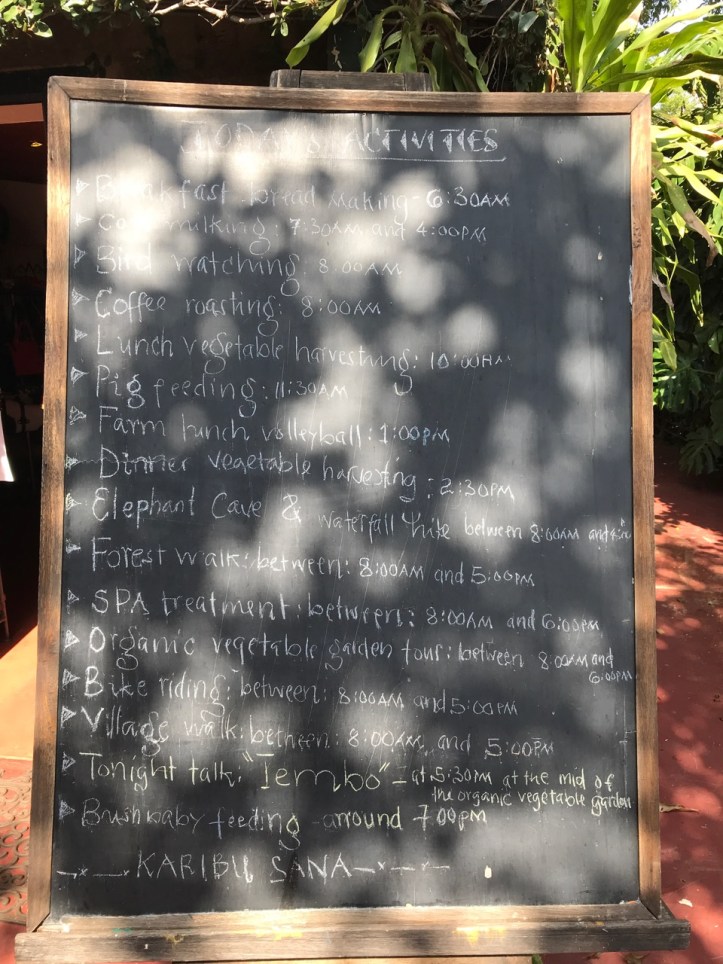 TODAY'S ACTIVITIES
Breakfast bread making - 6:30AM
Cow milking: 7:30AM and 4:00PM
Bird watching: 8:00AM
Coffee roasting: 8:00AM
Lunch vegetable harvesting: 10:00AM
Pig feeding: 11:30AM
Farm lunch volleyball: 1:00PM
Dinner vegetable harvesting: 2:30PM
Elephant Cave & waterfall hike between 8:00AM and
Forest walk: between: 8:00AM and 5:00PM
SPA treatment: between: 8:00AM and 6:00PM
Organic vegetable garden tour: between 8:00AM and
6:00PM
Bike riding: between: 8:00AM and 5:00PM
Village walk: between: 8:00AM and 5:00PM
Tonight talk: "Tembo" - at 5:30PM at the mid of
the organic vegetable garden
Bushbaby feeding - arround 7:00PM
KARIBU SANA